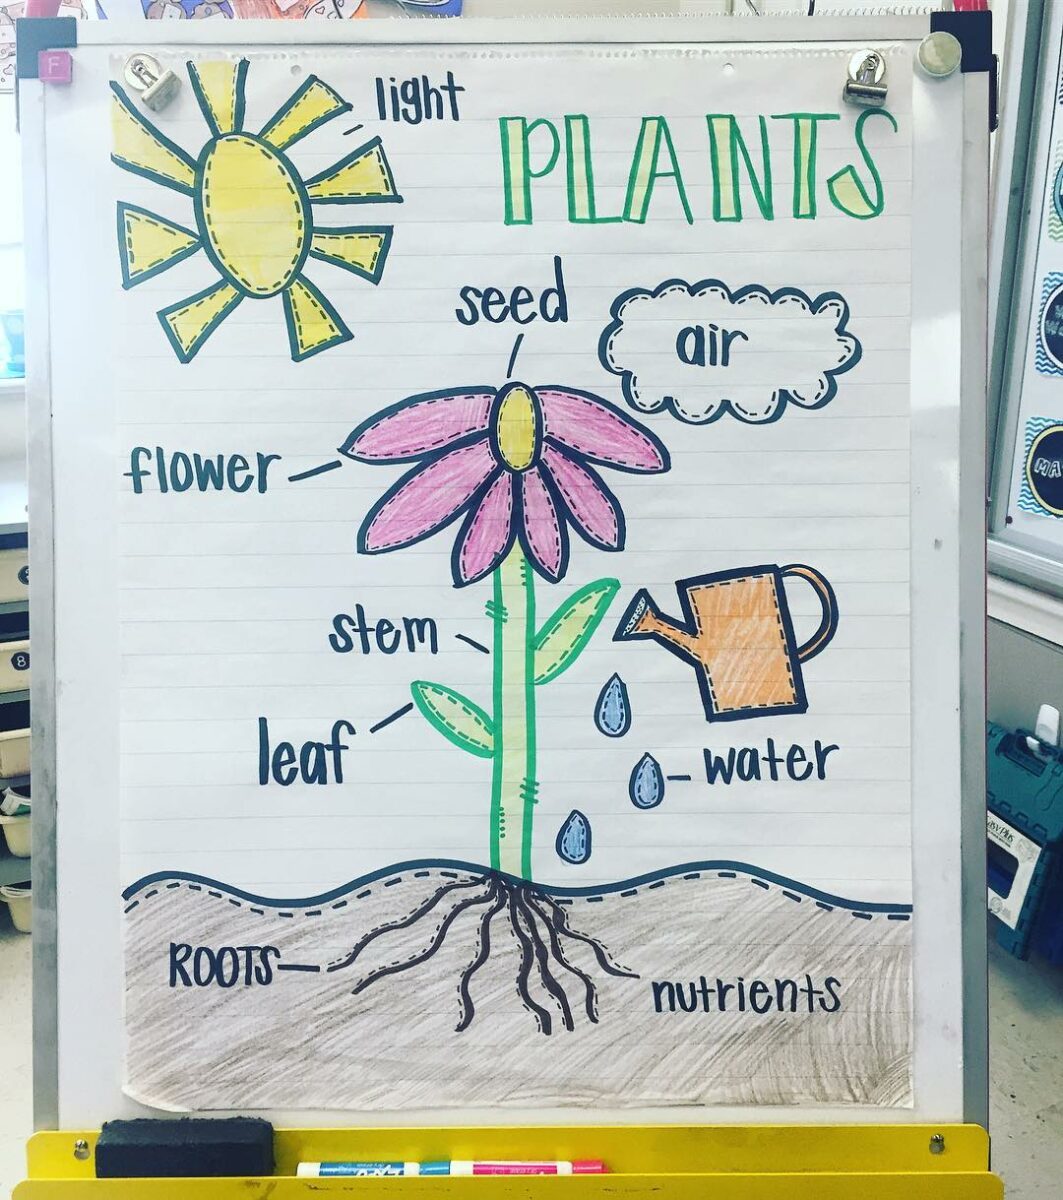 light
PLANTS
seed
air
flower
stem
leaf
water
ROOTS
nutrients
F
8
MA
EXPO